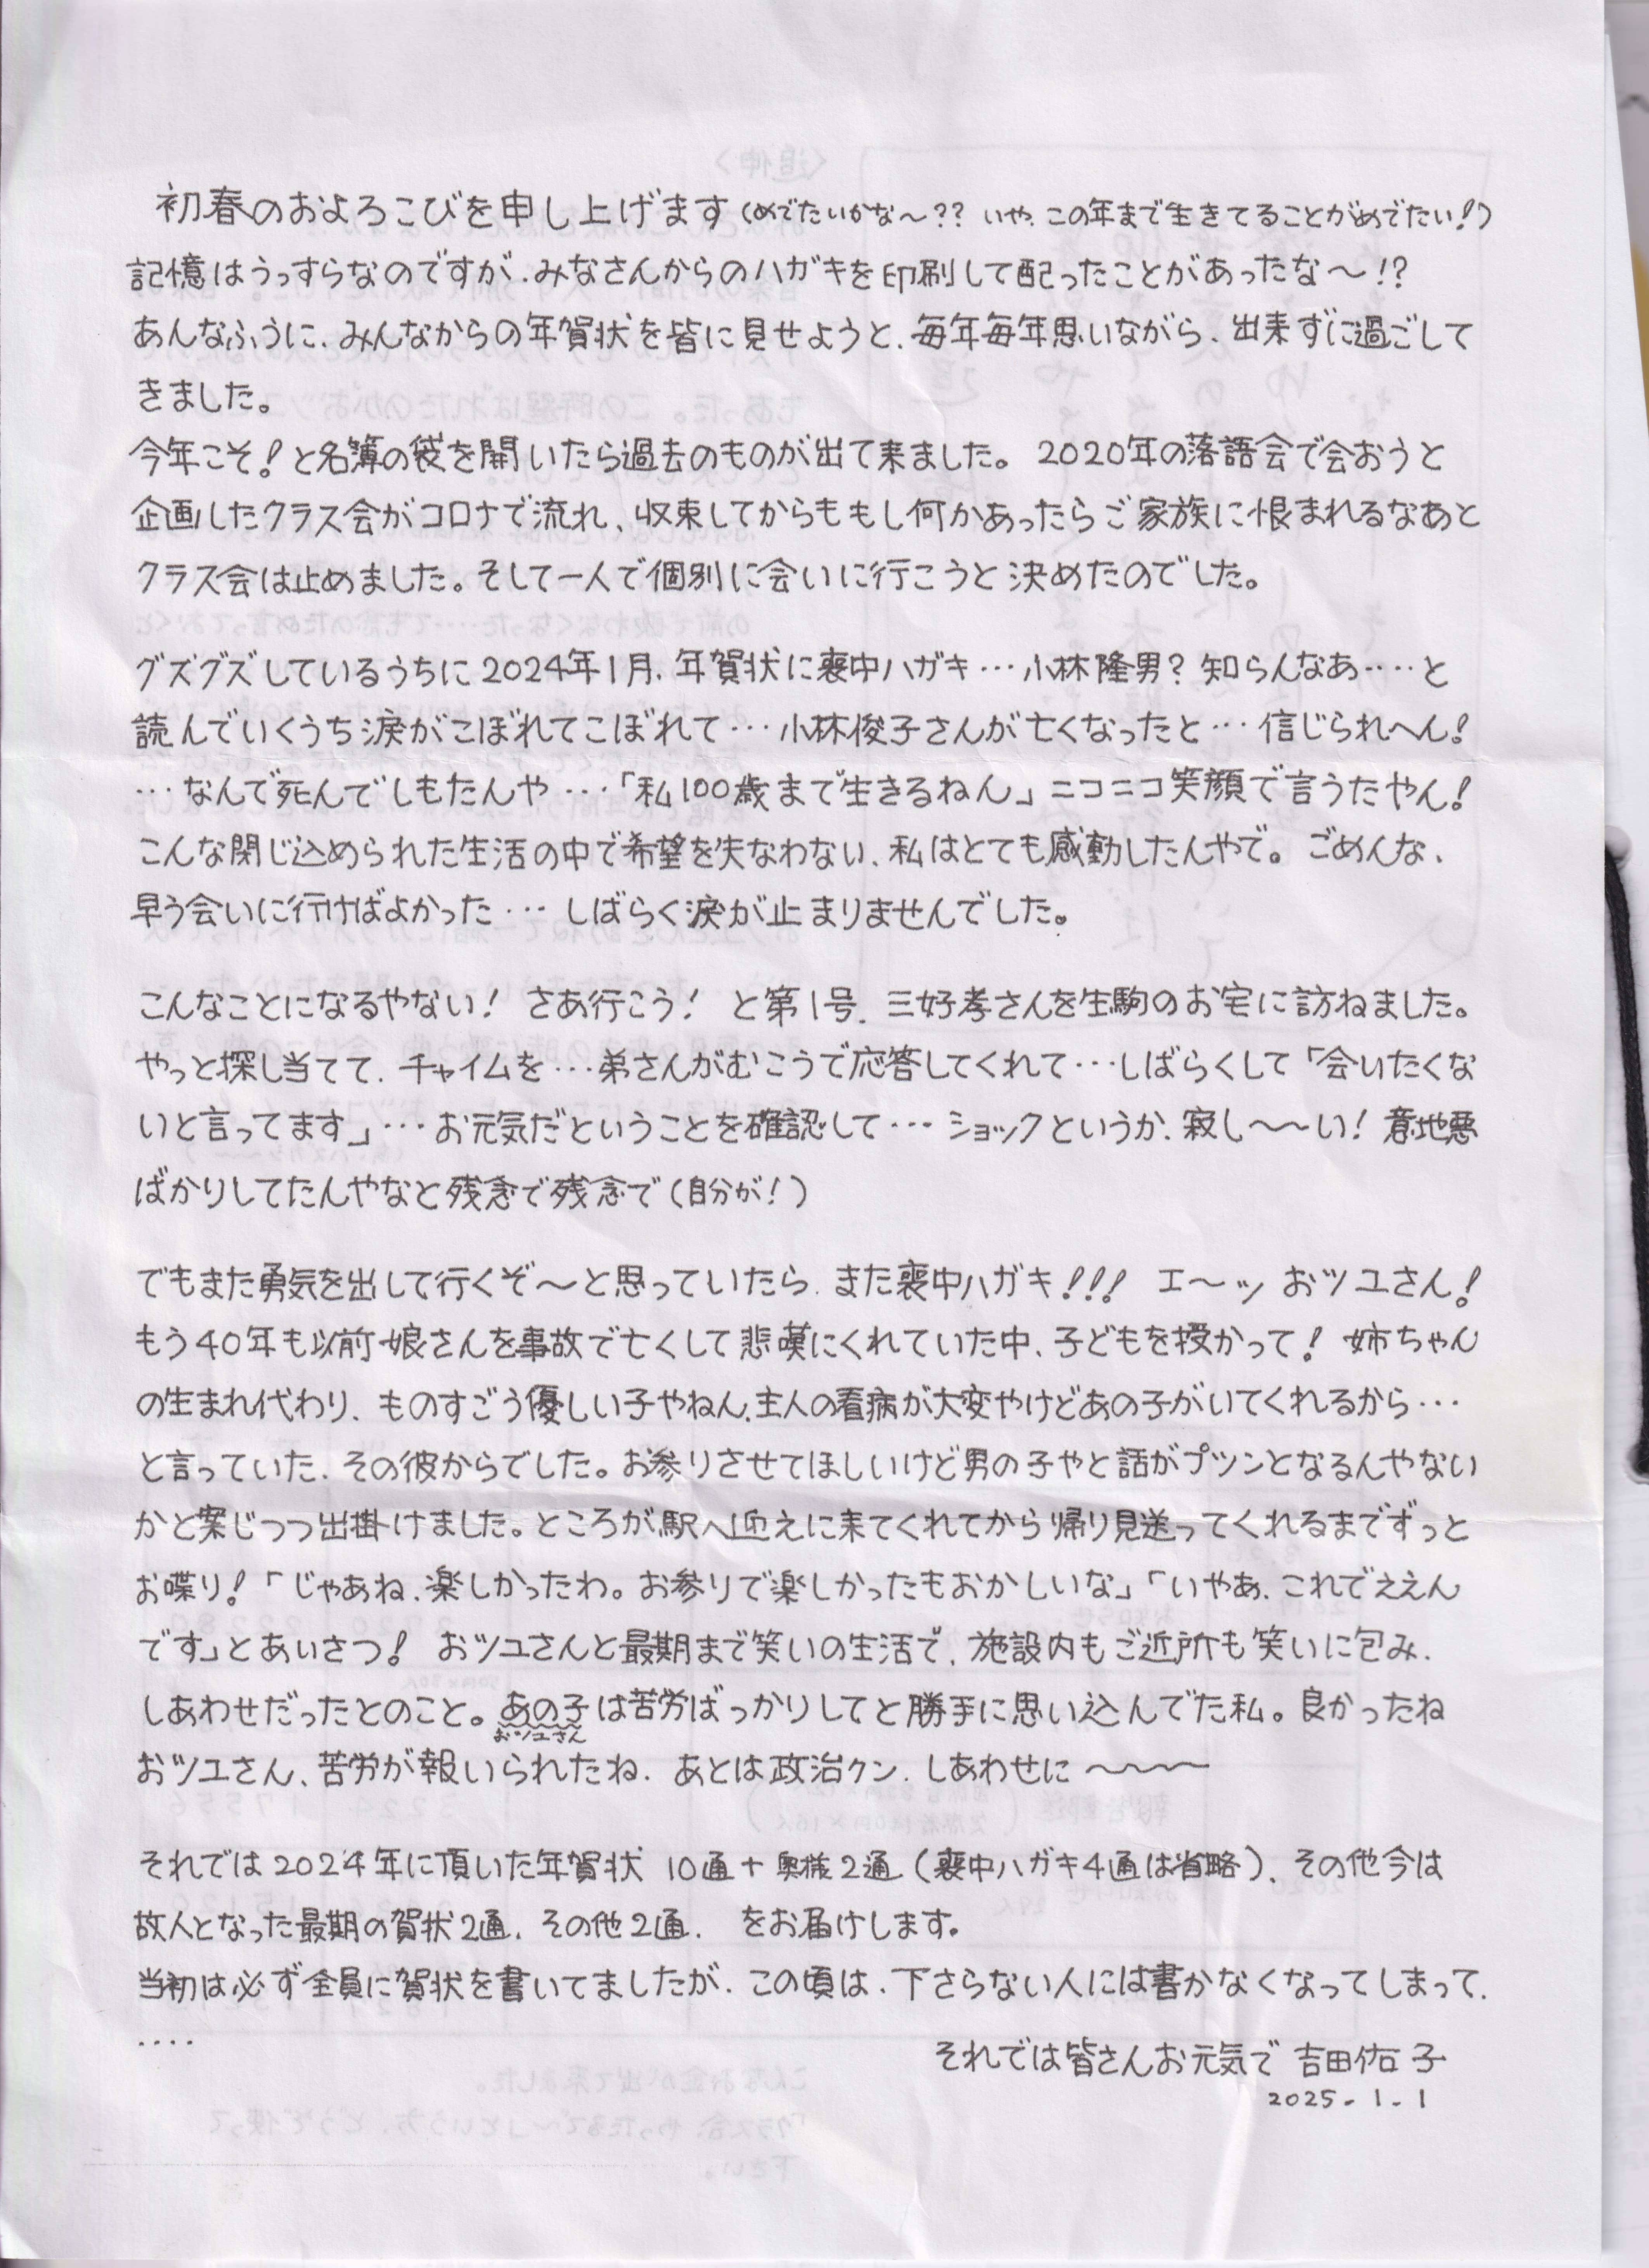 初春のおよろこびを申し上げます(めでたいかな〜?? いや、この年まで生きてることがめでたい!)
記憶はうっすらなのですが、みなさんからのハガキを印刷して配ったことがあったな〜!?
あんなふうに、みんなからの年賀状を皆に見せようと、毎年毎年思いながら、出来ずに過ごして
きました。
今年こそ!と名簿の袋を開いたら過去のものが出て来ました。2020年の落語会で会おうと
企画したクラス会がコロナで流れ、収束してからももし何かあったらご家族に恨まれるなあと
クラス会は止めました。そして一人で個別に会いに行こうと決めたのでした。
グズグズしているうちに2024年1月、年賀状に喪中ハガキ…小林隆男?知らんなあ‥‥と
読んでいくうち涙がこぼれてこぼれて…小林俊子さんが亡くなったと…信じられへん!
…なんで死んでしもたんや…「私100歳まで生きるねん」ニコニコ笑顔で言うたやん!
こんな閉じ込められた生活の中で希望を失なわない、私はとても感動したんやで。ごめんな、
早う会いに行けばよかった… しばらく涙が止まりませんでした。
こんなことになるやない! さあ行こう! と第1号、三好孝さんを生駒のお宅に訪ねました。
やっと探し当てて、チャイムを…弟さんがむこうで応答してくれて…しばらくして「会いたくな
いと言ってます」…お元気だということを確認して…ショックというか、寂し〜〜い!意地悪
ばかりしてたんやなと残念で残念で(自分が!)
でもまた勇気を出して行くぞ〜と思っていたら、また喪中ハガキ!!! エ〜ッ おツユさん!
もう40年も以前娘さんを事故で亡くして悲嘆にくれていた中、子どもを授かって! 姉ちゃん
の生まれ代わり、ものすごう優しい子やねん、主人の看病が大変やけどあの子がいてくれるから…
と言っていた、その彼からでした。お参りさせてほしいけど男の子やと話がプツンとなるんやない
かと案じつつ出掛けました。ところが駅へ迎えに来てくれてから帰り見送ってくれるまでずっと
お喋り!「じゃあね、楽しかったわ。お参りで楽しかったもおかしいな」「いやあ、これでええん
です」とあいさつ! おツユさんと最期まで笑いの生活で、施設内もご近所も笑いに包み、
しあわせだったとのこと。あの子は苦労ばっかりしてと勝手に思い込んでた私。良かったね
おツユさん
おツユさん、苦労が報いられたね、あとは政治クン、しあわせに〜〜〜〜
それでは2024年に頂いた年賀状 10通+奥様2通(喪中ハガキ4通は省略)、その他今は
故人となった最期の賀状2通、その他2通、 をお届けします。
当初は必ず全員に賀状を書いてましたが、この頃は、下さらない人には書かなくなってしまって、
‥‥
それでは皆さんお元気で 吉田佑子
2025.1.1